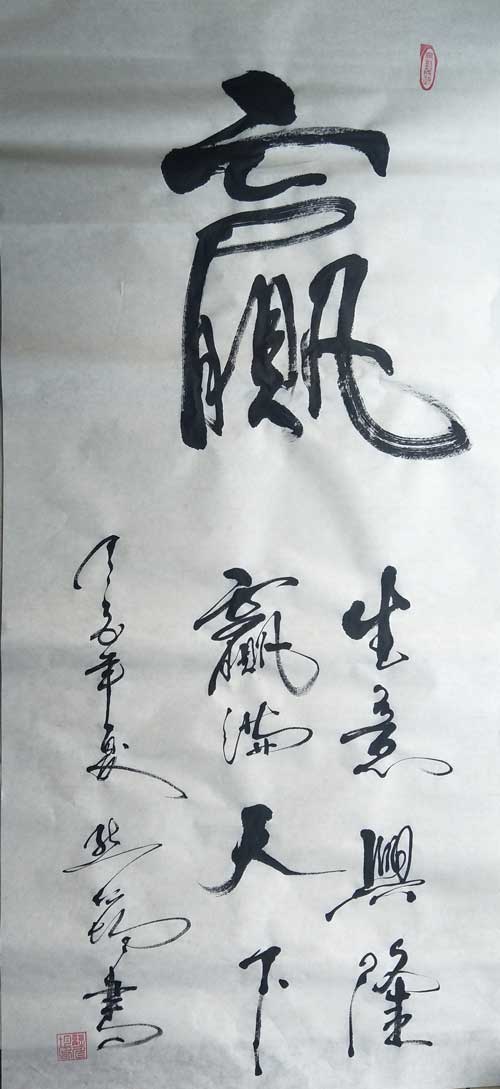 赢
生意興隆
赢满天下
年夏 書